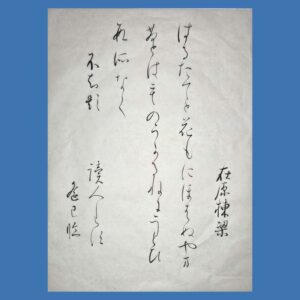 在原棟梁
はるたてと花もにほはぬや万
さとはものうかるねにうくひ
なく
讀人しらす
臨